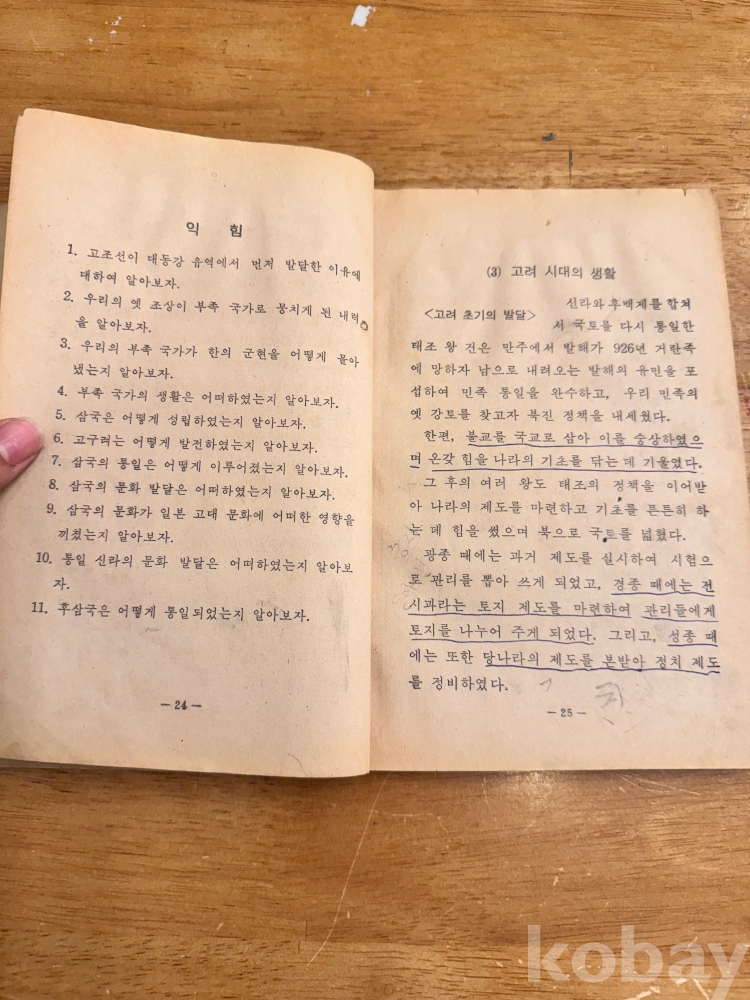 익 힘
1. 고조선이 대동강 유역에서 먼저 발달한 이유에
대하여 알아보자.
2. 우리의 옛 조상이 부족 국가로 뭉치게 된 내력
을 알아보자.
3. 우리의 부족 국가가 한의 군현을 어떻게 몰아
냈는지 알아보자.
4. 부족 국가의 생활은 어떠하였는지 알아보자.
5. 삼국은 어떻게 성립하였는지 알아보자.
6. 고구려는 어떻게 발전하였는지 알아보자.
7. 삼국의 통일은 어떻게 이루어졌는지 알아보자.
8. 삼국의 문화 발달은 어떠하였는지 알아보자.
9. 삼국의 문화가 일본 고대 문화에 어떠한 영향을
끼쳤는지 알아보자.
10. 통일 신라의 문화 발달은 어떠하였는지 알아보
자.
11. 후삼국은 어떻게 통일되었는지 알아보자.
— 24 —
(3) 고려 시대의 생활
<고려 초기의 발달>
신라와 후백제를 합쳐
서 국토를 다시 통일한
태조 왕 건은 만주에서 발해가 926년 거란족
에 망하자 남으로 내려오는 발해의 유민을 포
섭하여 민족 통일을 완수하고, 우리 민족의
옛 강토를 찾고자 북진 정책을 내세웠다.
한편, 불교를 국교로 삼아 이를 숭상하였으
며 온갖 힘을 나라의 기초를 닦는 데 기울였다.
그 후의 여러 왕도 태조의 정책을 이어받
아 나라의 제도를 마련하고 기초를 튼튼히 하
는 데 힘을 썼으며 북으로 국토를 넓혔다.
광종 때에는 과거 제도를 실시하여 시험으
로 관리를 뽑아 쓰게 되었고, 경종 때에는 전
시과라는 토지 제도를 마련하여 관리들에게
토지를 나누어 주게 되었다. 그리고, 성종 때
에는 또한 당나라의 제도를 본받아 정치 제도
를 정비하였다.
— 25 —
kobay